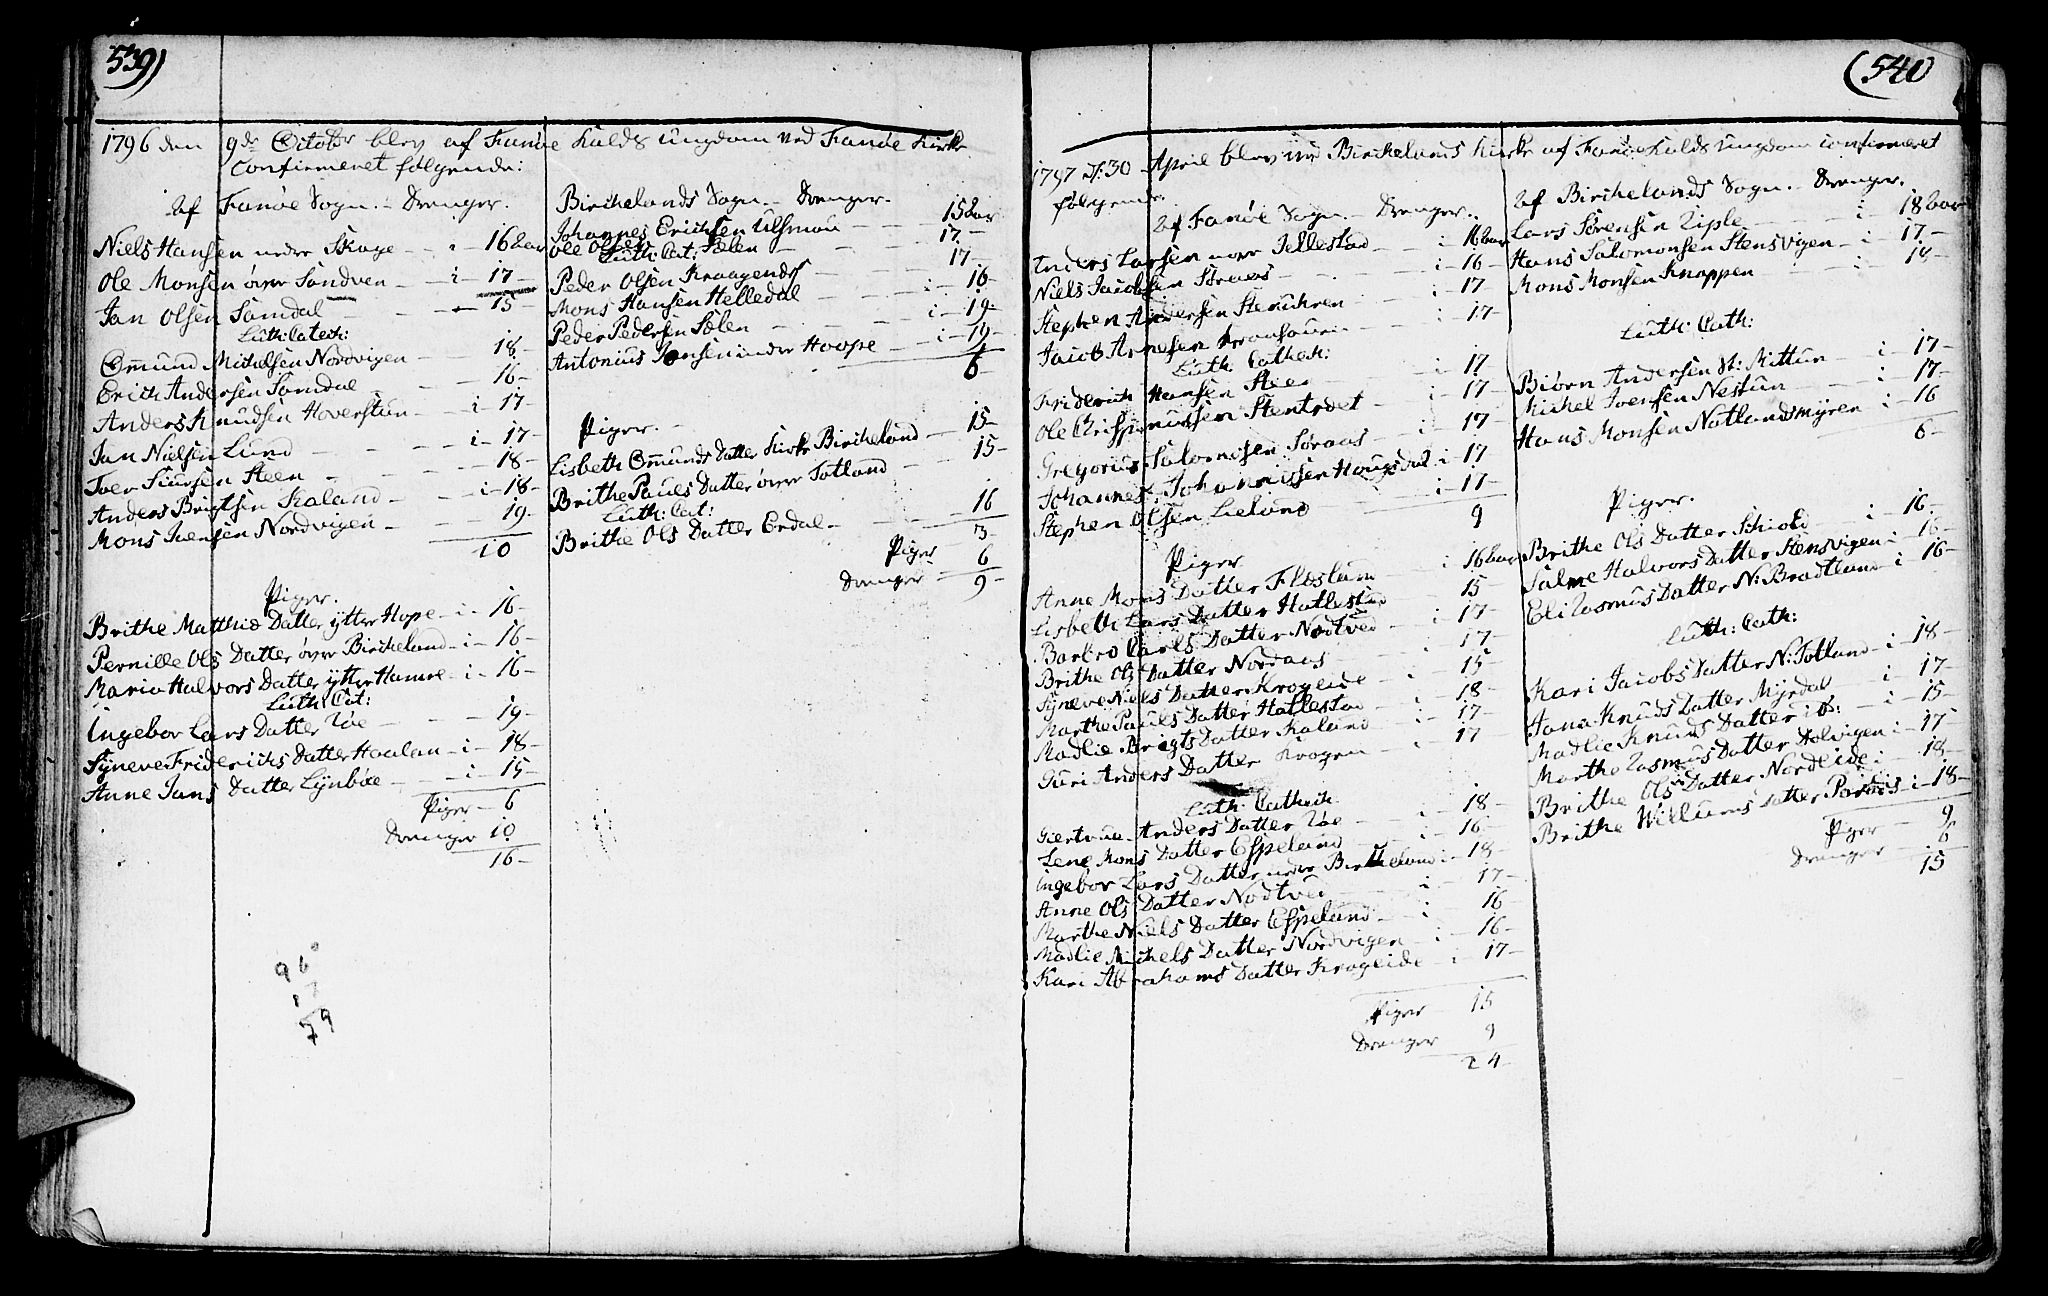 539)
1796 den 9de Octobr blev af Fanöe Kalds Ungdom ved Fanöe Kirke
Confirmeret følgende:
af Fanöe Sogn. Drenger.
Niels Hansen nedre Skage - i - 16 aar
Ole Monsen över Sandven - i - 17 -
Jan Olsen Samdal - 15 -
Luth: Catech:
Omund Michelsen Nordvigen - 18 -
Erich Andersen Samdal - 16 -
Anders Knudsen Hoverstun - i - 17 -
Jan Nielsen Lund - i - 17 -
Iver Siursen Steen - 18 -
Anders Brigtsen Kaland - i - 18 -
Mons Ivensen Nordvigen - 19 -
10
Piger.
Brithe Matthis Datter ytter Hope - i - 16 -
Pernille Ols Datter över Bircheland - i - 16 -
Maria Halvors Datter ytter Hamre - i - 16 -
Luth: Cat:
Ingebor Lars Datter Röe - 19 -
Syneve Friderichs Datter Haaland - i - 18 -
Anne Jans Datter Lynböe - i - 15 -
Piger - 6
Drenger 10
16 -
96
17
79
Birchelands Sogn. Drenger.
Johannes Erichsen Ulsmou - 15 aar
Ole Olsen Sælen - 17 -
Luth: Cat:
Peder Olsen Kraagenes - 17 -
Mons Hansen Helledal - i - 16 -
Peder Pedersen Sælen - i - 19 -
Antonius Jonsen indre Hoope - i - 19 -
6 -
Piger.
Lisbeth Omunds Datter Kirke Bircheland - 15 -
Brithe Pauels Datter över Totland - 15 -
Luth: Cat:
Brithe Ols Datter Erdal - 16
3 -
Piger 6
Drenger 9 -
(540
1797 d: 30 April blev ved Birchelands Kirke af Fanöe Kalds Ungdom confirmeret
følgende.
af Fanöe Sogn. Drenger.
Anders Larsen nore Tellestad - i - 16 aar
Niels Jacobsen Söraas - i - 16 -
Stephen Andersen Stenuhren - i - 17 -
Jacob Arnesen - i - 17 -
Luth: Cathech:
Friderich Hansen Steen - i - 17
Ole Chrispinussen Stentvedt - i - 17 -
Gregorius Salomonsen Söraas - i - 17
Johannes Johannissen Hougsdal i 17
Stephen Olsen Lielund - i - 17 -
9
Piger
Anne Mons Datter Fleslund - i - 16 aar
Lisbeth Lars Datter Hatlestad - 15
Barbro Carls Datter Nodtved - i - 17 -
Brithe Ols Datter Nordaas - i - 17 -
Syneve Niels Datter Krogeide - i - 15
Marthe Pauls Datter Hatlestad - i - 18 -
Madlie Brigts Datter Kaland - i - 17 -
Guri Anders Datter Krogen - i - 17
Luth: Cathech
Giertrue Anders Datter Röe - i - 18 -
Lene Mons Datter Espeland - i - 16 -
Ingebor Lars Datter nedre Bircheland i - 18 -
Anne Ols Datter Nodtved - i - 17 -
Marthe Niels Datter Espeland - i - 16
Madlie Michels Datter Nordvigen - i - 16 -
Kari Abrahams Datter Krogeide - i - 17 -
Piger - 15
Drenger 9
24 -
af Birchelands Sogn. Drenger.
Lars Sörensen Riple - i - 18 aar
Hans Salomonsen Stensvigen - i - 17 -
Mons Monsen Knappen - i - 18 -
Luth: Cath:
Biørn Andersen St: Mittun - i - 17 -
Michel Ivensen Nestun - i - 17 -
Hans Monsen Natlandsmyren i - 16
6 -
Piger.
Brithe Ols Datter Schiold - i - 16 -
Salme Halvors Datter Stensvigen i - 16 -
Eli Rasmus Datter N: Bradtland i - 16 -
Luth: Cath:
Kari Jacobs Datter N: Totland - i - 18 -
Jana Knuds Datter Myrdal - i - 17 -
Madlie Knuds Datter ib: - i - 15 -
Marthe Rasmus Datter Dolvigen i - 17
Brithe Ols Datter Nordeide i - 18 -
Brithe Willums Datter Paradis i - 18 -
Piger - 9
Drenger 6
15